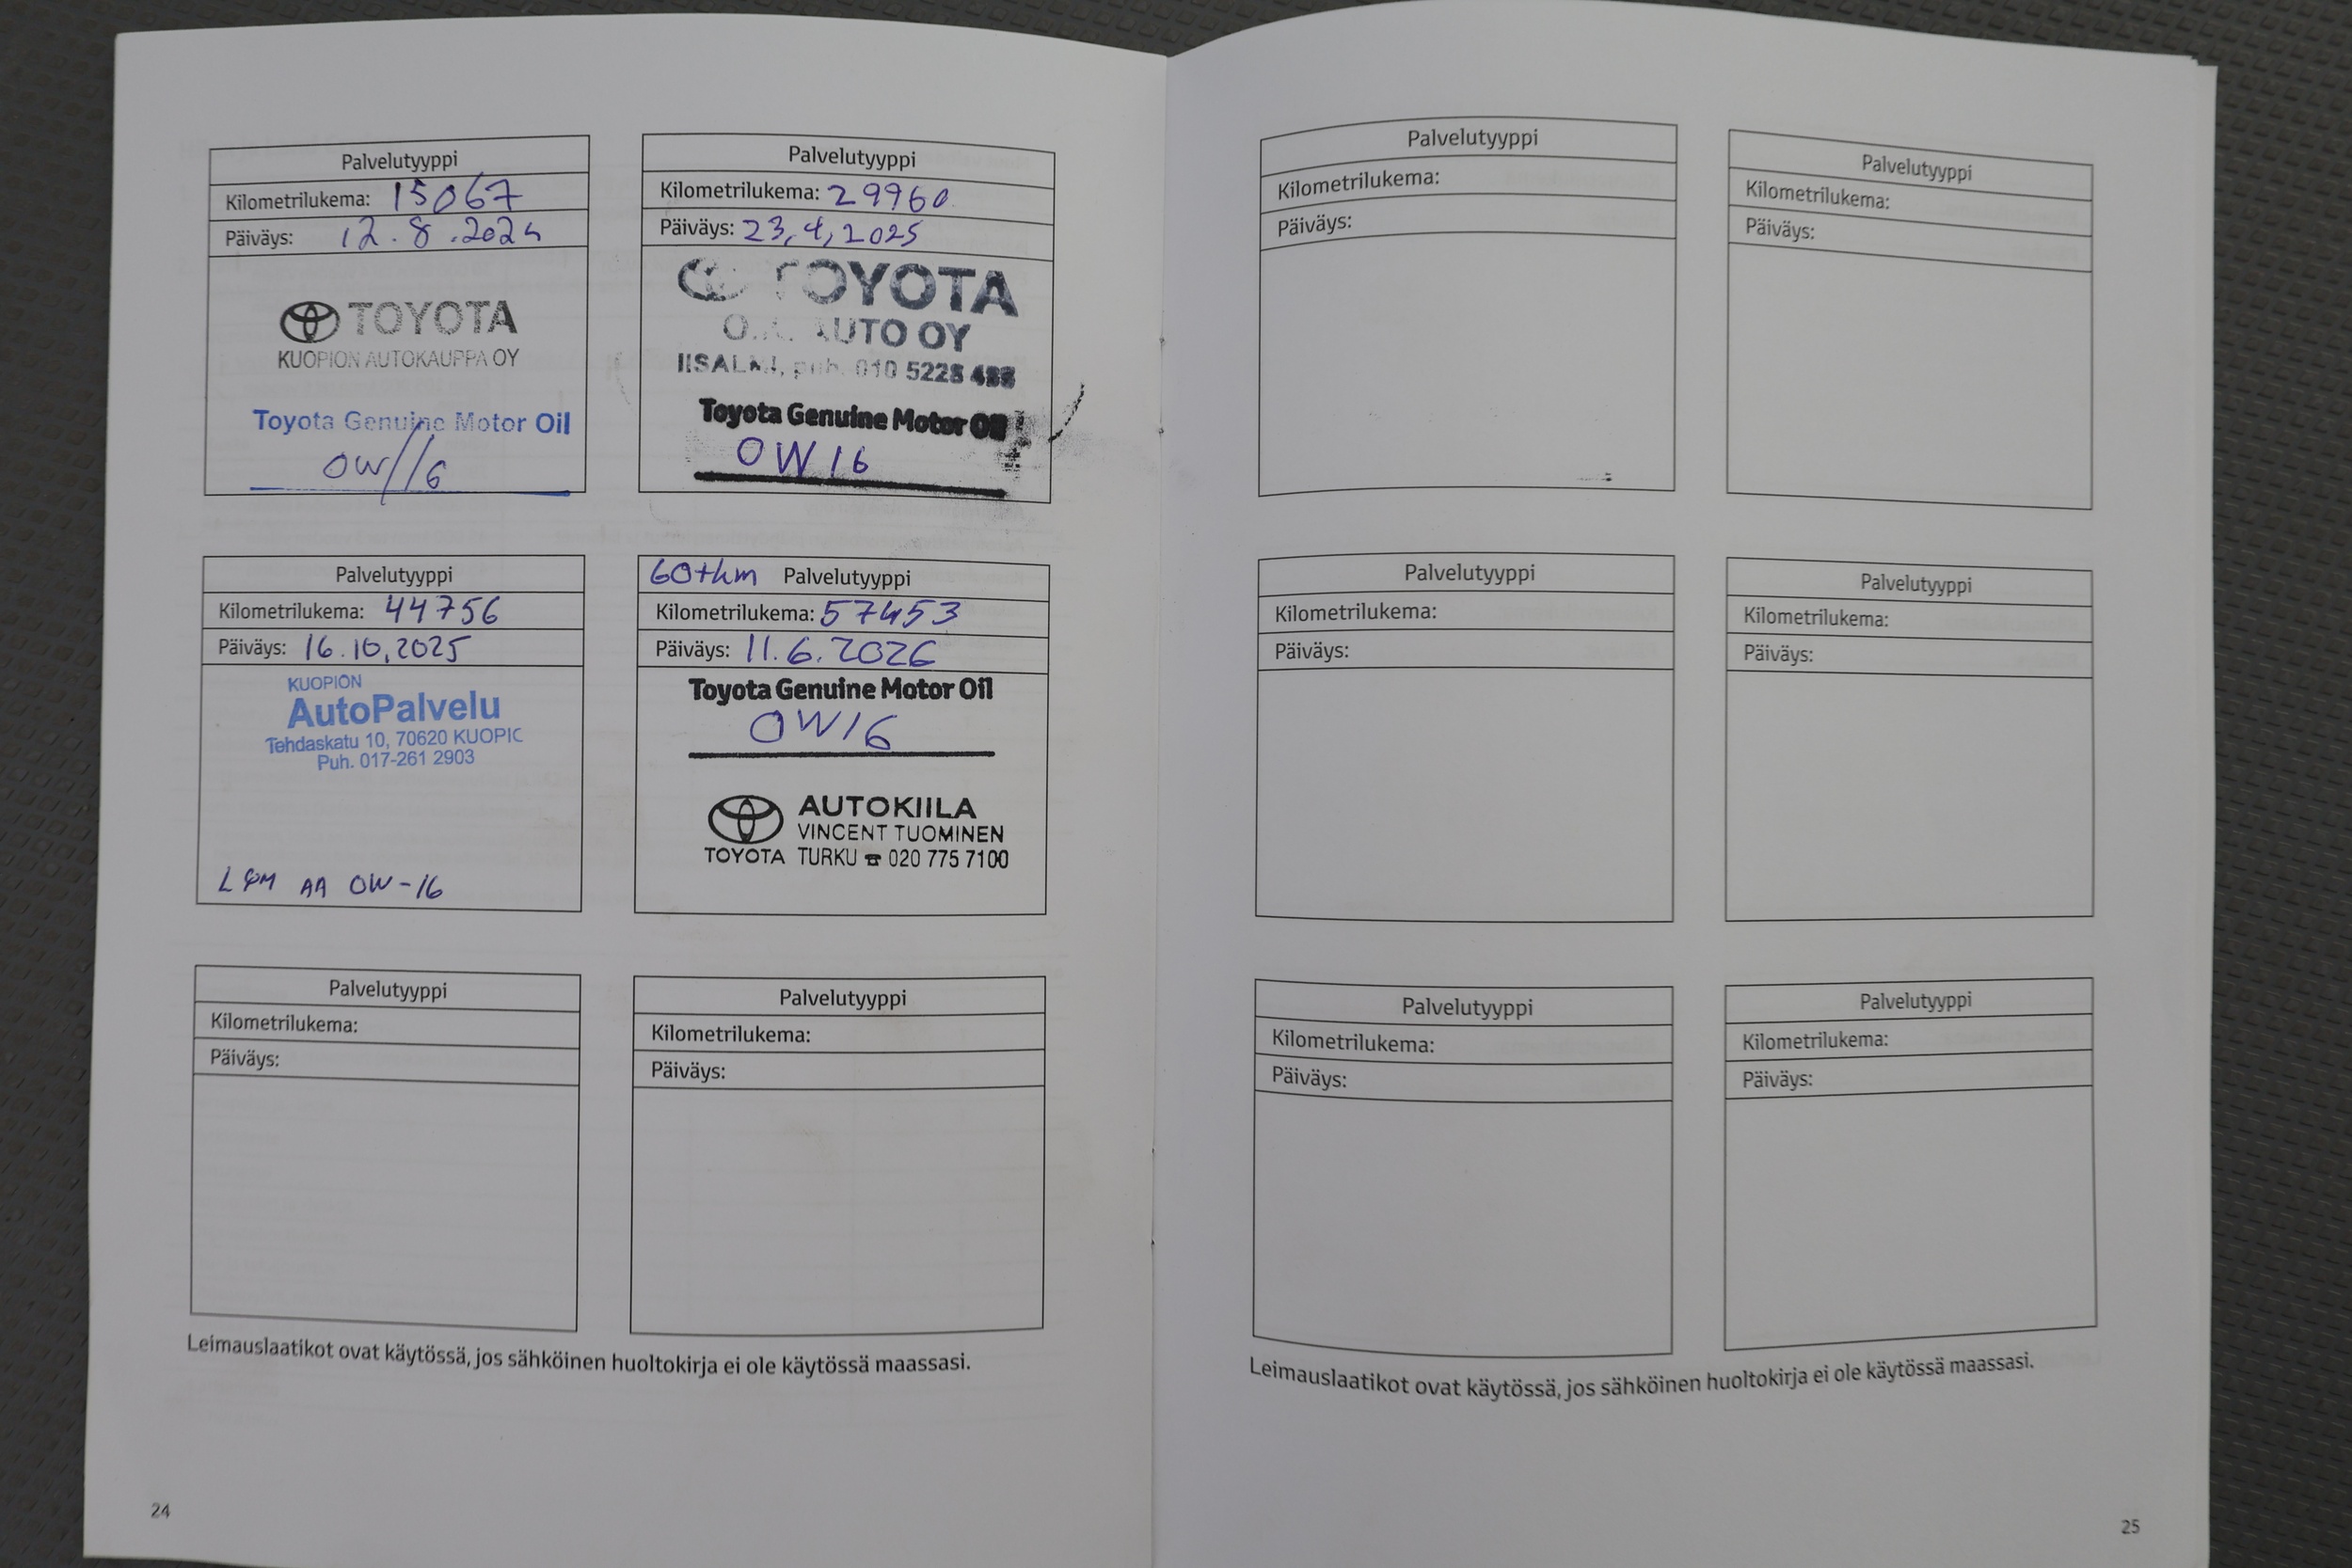 Palvelutyyppi
Kilometrilukema: 15067
Päiväys: 12.8.2024
TOYOTA
KUOPION AUTOKAUPPA OY
Toyota Genuine Motor Oil
0W//16
Palvelutyyppi
Kilometrilukema: 29960
Päiväys: 23,4,2025
TOYOTA
AUTO OY
IISALMI, puh. 010 5228
Toyota Genuine Motor Oil
0W16
Palvelutyyppi
Kilometrilukema: 44756
Päiväys: 16.10,2025
KUOPION
AutoPalvelu
Tehdaskatu 10, 70620 KUOPIO
Puh. 017-261 2903
AA 0W-16
60tkm Palvelutyyppi
Kilometrilukema: 57453
Päiväys: 11.6.2026
Toyota Genuine Motor Oil
0W16
AUTOKIILA
VINCENT TUOMINEN
TOYOTA TURKU ☎ 020 775 7100
Palvelutyyppi
Kilometrilukema:
Päiväys:
Palvelutyyppi
Kilometrilukema:
Päiväys:
Leimauslaatikot ovat käytössä, jos sähköinen huoltokirja ei ole käytössä maassasi.
24
Palvelutyyppi
Kilometrilukema:
Päiväys:
Palvelutyyppi
Kilometrilukema:
Päiväys:
Palvelutyyppi
Kilometrilukema:
Päiväys:
Palvelutyyppi
Kilometrilukema:
Päiväys:
Palvelutyyppi
Kilometrilukema:
Päiväys:
Palvelutyyppi
Kilometrilukema:
Päiväys:
Leimauslaatikot ovat käytössä, jos sähköinen huoltokirja ei ole käytössä maassasi.
25